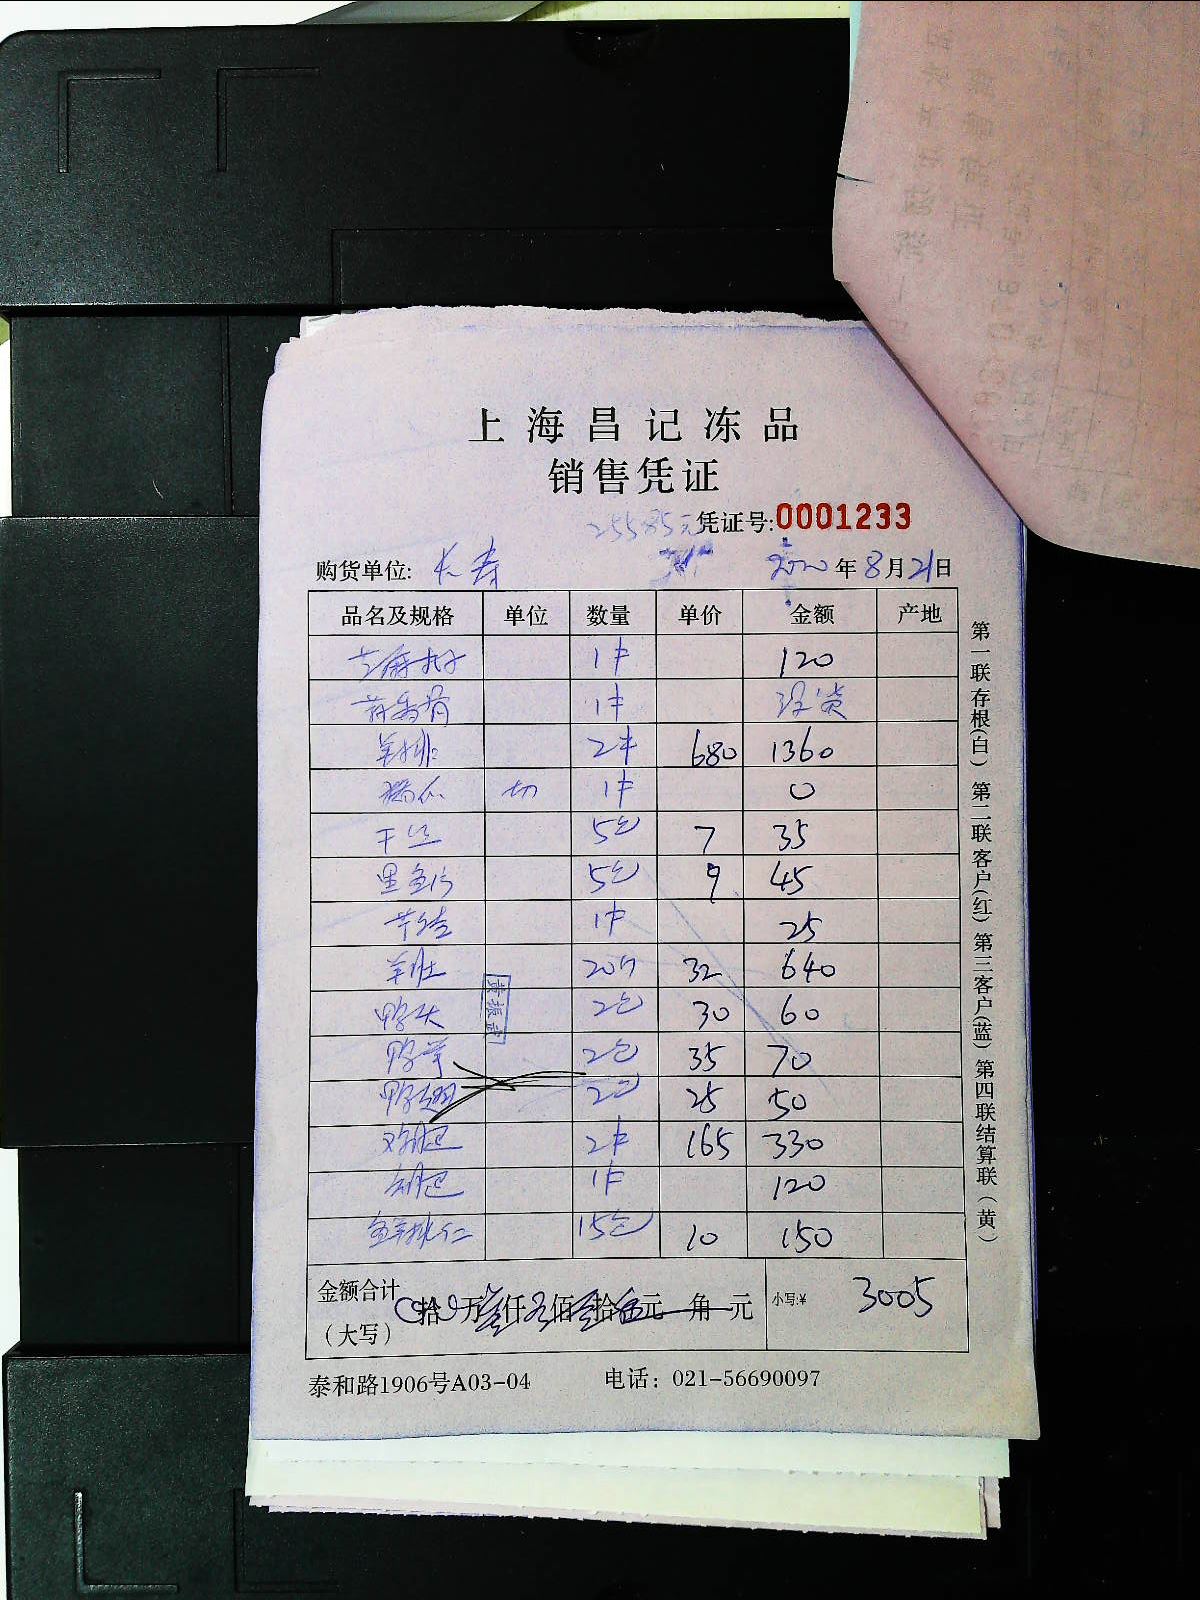 上海昌记冻品
销售凭证
凭证号:0001233
购货单位: 长寿 2020年8月21日
品名及规格 单位 数量 单价 金额 产地
芝麻丸子 1件 120
1件 没货
羊排 2件 680 1360
切 1件 0
干丝 5包 7 35
5包 9 45
1件 25
羊肚 20斤 32 640
鸭头 2包 30 60
鸭掌 2包 35 70
鸭翅 2包 25 50
2件 165 330
1件 120
15包 10 150
金额合计(大写) 拾 万叁仟 佰 拾伍元 角 元 小写:¥ 3005
泰和路1906号A03-04 电话: 021-56690097
第一联存根(白) 第二联客户(红) 第三客户(蓝) 第四联结算联(黄)